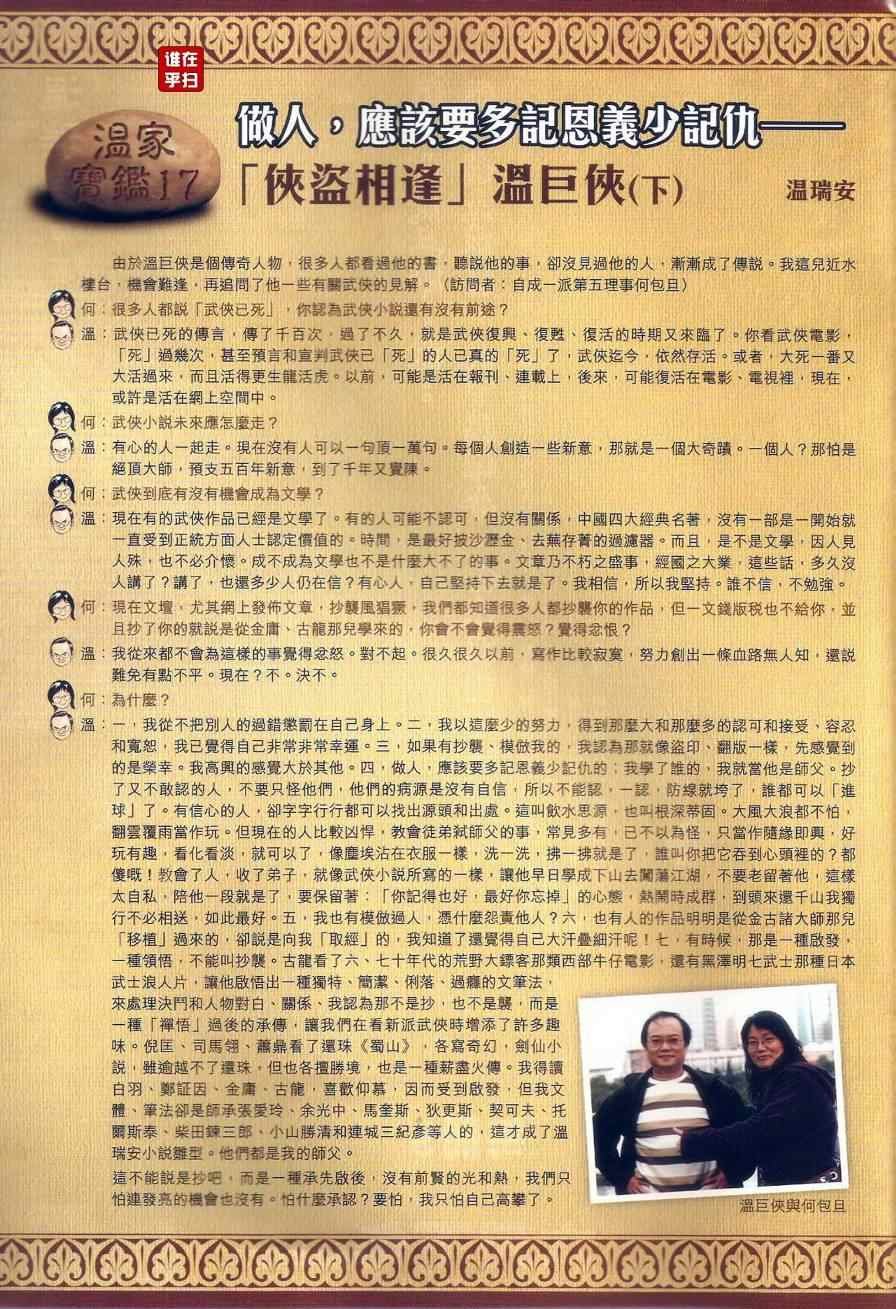 谁在
乎扫
溫家
寶鑑17
做人，應該要多記恩義少記仇——
「俠盜相逢」溫巨俠(下)
溫瑞安
由於溫巨俠是個傳奇人物，很多人都看過他的書，聽說他的事，卻沒見過他的人，漸漸成了傳說。我這兒近水
樓台，機會難逢，再追問了他一些有關武俠的見解。（訪問者：自成一派第五理事何包旦）
何：很多人都説「武俠已死」，你認為武俠小説還有沒有前途？
溫：武俠已死的傳言，傳了千百次，過了不久，就是武俠復興、復甦、復活的時期又來臨了。你看武俠電影，
「死」過幾次，甚至預言和宣判武俠已「死」的人已真的「死」了，武俠迄今，依然存活。或者，大死一番又
大活過來，而且活得更生龍活虎。以前，可能是活在報刊、連載上，後來，可能復活在電影、電視裡，現在，
或許是活在網上空間中。
何：武俠小説未來應怎麼走？
溫：有心的人一起走。現在沒有人可以一句頂一萬句。每個人創造一些新意，那就是一個大奇蹟。一個人？那怕是
絕頂大師，預支五百年新意，到了千年又覺陳。
何：武俠到底有沒有機會成為文學？
溫：現在有的武俠作品已經是文學了。有的人可能不認可，但沒有關係，中國四大經典名著，沒有一部是一開始就
一直受到正統方面人士認定價值的。時間，是最好披沙瀝金、去蕪存菁的過濾器。而且，是不是文學，因人見
人殊，也不必介懷。成不成為文學也不是什麼大不了的事。文章乃不朽之盛事，經國之大業，這些話，多久沒
人講了？講了，也還多少人仍在信？有心人，自己堅持下去就是了。我相信，所以我堅持。誰不信，不勉強。
何：現在文壇，尤其網上發佈文章，抄襲風猖獗，我們都知道很多人都抄襲你的作品，但一文錢版税也不給你，並
且抄了你的就説是從金庸、古龍那兒學來的，你會不會覺得震怒？覺得忿恨？
溫：我從來都不會為這樣的事覺得忿怒。對不起。很久很久以前，寫作比較寂寞，努力創出一條血路無人知，還説
難免有點不平。現在？不。決不。
何：為什麼？
溫：一，我從不把別人的過錯懲罰在自己身上。二，我以這麼少的努力，得到那麼大和那麼多的認可和接受、容忍
和寬恕，我已覺得自己非常非常幸運。三，如果有抄襲、模倣我的，我認為那就像盜印、翻版一樣，先感覺到
的是榮幸。我高興的感覺大於其他。四，做人，應該要多記恩義少記仇的；我學了誰的，我就當他是師父。抄
了又不敢認的人，不要只怪他們，他們的病源是沒有自信，所以不能認，一認，防線就垮了，誰都可以「進
球」了。有信心的人，卻字字行行都可以找出源頭和出處。這叫飲水思源，也叫根深蒂固。大風大浪都不怕，
翻雲覆雨當作玩。但現在的人比較凶悍，教會徒弟弒師父的事，常見多有，已不以為怪，只當作隨緣即興，好
玩有趣，看化看淡，就可以了，像塵埃沾在衣服一樣，洗一洗，拂一拂就是了，誰叫你把它吞到心頭裡的？都
傻嘅！教會了人，收了弟子，就像武俠小説所寫的一樣，讓他早日學成下山去闖蕩江湖，不要老留著他，這樣
太自私，陪他一段就是了，要保留著：「你記得也好，最好你忘掉」的心態，熱鬧時成群，到頭來還千山我獨
行不必相送，如此最好。五，我也有模倣過人，憑什麼怨責他人？六，也有人的作品明明是從金古諸大師那兒
「移植」過來的，卻説是向我「取經」的，我知道了還覺得自己大汗疊細汗呢！七，有時候，那是一種啟發，
一種領悟，不能叫抄襲。古龍看了六、七十年代的荒野大鏢客那類西部牛仔電影，還有黑澤明七武士那種日本
武士浪人片，讓他啟悟出一種獨特、簡潔、俐落、過癮的文筆法，
來處理決鬥和人物對白、關係、我認為那不是抄，也不是襲，而是
一種「禪悟」過後的承傳，讓我們在看新派武俠時增添了許多趣
味。倪匡、司馬翎、蕭鼎看了還珠《蜀山》，各寫奇幻，劍仙小
説，雖逾越不了還珠，但也各擅勝境，也是一種薪盡火傳。我得讀
白羽、鄭証因、金庸、古龍，喜歡仰慕，因而受到啟發，但我文
體、筆法卻是師承張愛玲、余光中、馬奎斯、狄更斯、契可夫、托
爾斯泰、柴田鍊三郎、小山勝清和連城三紀彥等人的，這才成了溫
瑞安小説雛型。他們都是我的師父。
這不能説是抄吧，而是一種承先啟後，沒有前賢的光和熱，我們只
怕連發亮的機會也沒有。怕什麼承認？要怕，我只怕自己高攀了。
溫巨俠與何包旦